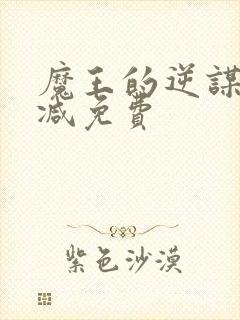 魔王的逆謀
減免費
紫色沙漠